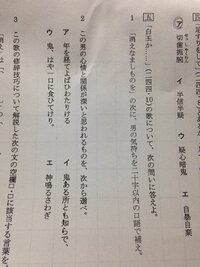 ア 切歯扼腕 イ 半信半疑 ウ 疑心暗鬼 エ 自暴自棄
五 「白玉か……」(二四四・10)の歌について、次の問いに答えよ。
1 「消えなましものを」の次に、男の気持ちを二十字以内の口語で補え。
2 この男の心情と関係が深いと思われるものを、次から選べ。
ア 年を経てよばひわたりける イ 鬼ある所とも知らで、
ウ 鬼、はや一口に食ひてけり。 エ 神鳴るさわぎ
3 この歌の修辞技巧について解説した次の文の空欄イ・ロに該当する言葉を、